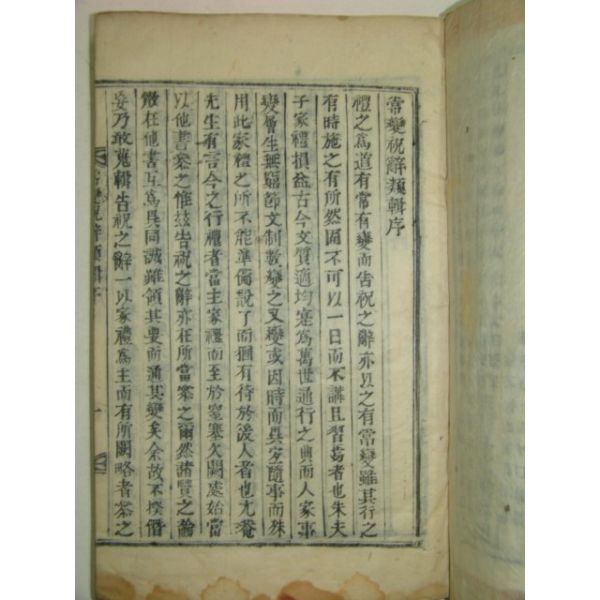 常變祝辭類輯序
禮之爲道有常有變而告祝之辭亦以之有常變雖其行之
有時施之有所然固不可以一日而不講且習焉者也朱夫
子家禮損益古今文質適均寔爲萬世通行之典而人家事
變層生無窮節文制數變之又變或因時而異宜隨事而殊
用此家禮之所不能準備說了而猶有待於後人者也尤菴
先生有言今之行禮者當主家禮而至於窒塞欠闕處始當
以他書叅之惟玆告祝之辭亦在所當叅之爾然諸賢之論
散在他書互爲異同誠難領其要而通其變矣余故不揆僭
妄乃敢蒐輯告祝之辭一以家禮爲主而有所闕略者叅之
常變祝辭類輯序 一